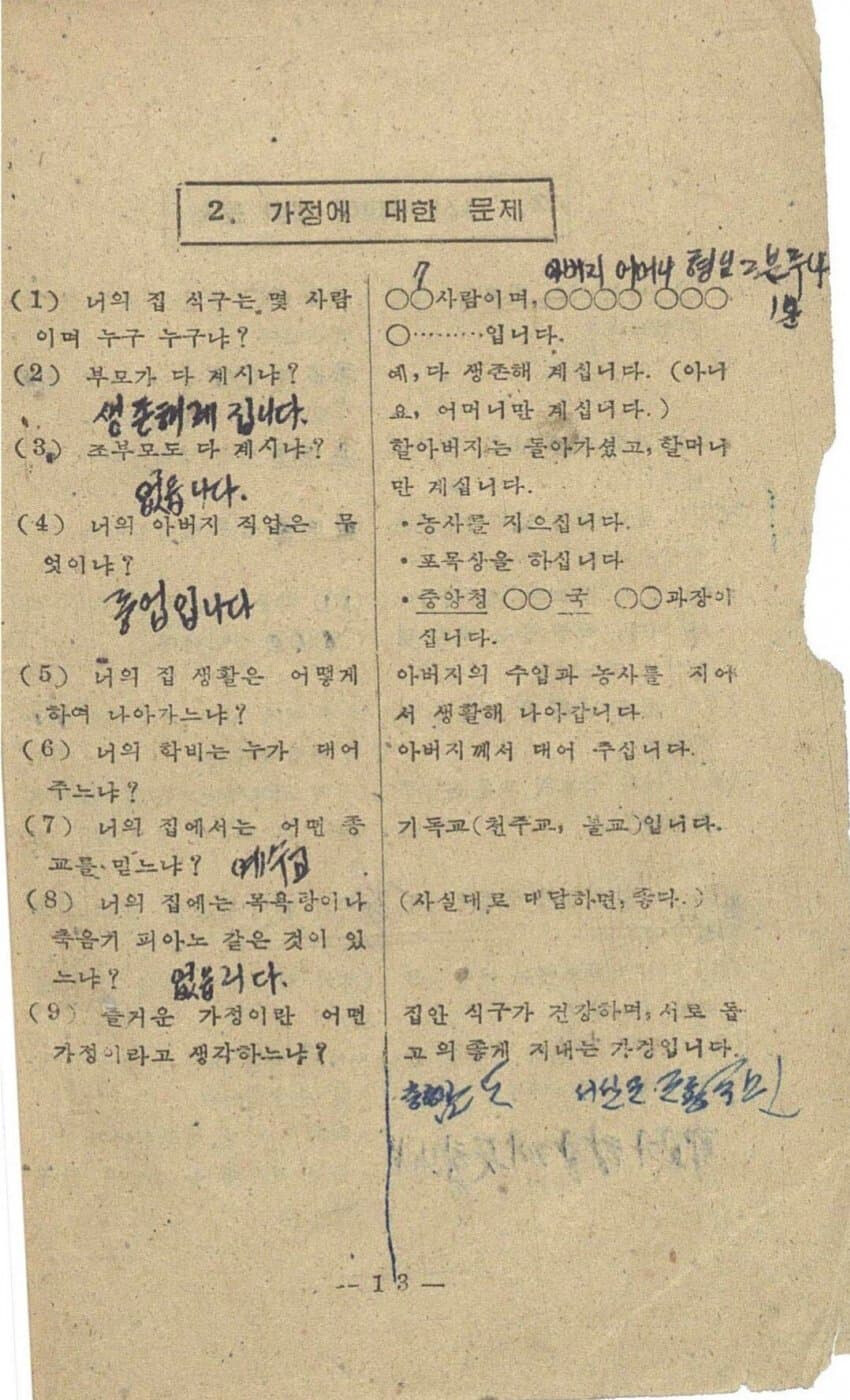 2. 가정에 대한 문제
7 아버지 어머니
(1) 너의 집 식구는 몇 사람
이며 누구 누구냐?
○○사람이며, ○○○○ ○○○
○………입니다.
(2) 부모가 다 계시냐?
생존해 계십니다.
예, 다 생존해 계십니다. (아니
요, 어머니만 계십니다.)
(3) 조부모도 다 계시냐?
없읍니다.
할아버지는 돌아가셨고, 할머니
만 계십니다.
(4) 너의 아버지 직업은 무
엇이냐?
입니다
• 농사를 지으십니다.
• 포목상을 하십니다
• 중앙청 ○○ 국 ○○과장이
십니다.
(5) 너의 집 생활은 어떻게
하여 나아가느냐?
아버지의 수입과 농사를 지어
서 생활해 나아갑니다
(6) 너의 학비는 누가 대어
주느냐?
아버지께서 대어 주십니다.
(7) 너의 집에서는 어떤 종
교를 믿느냐? 예수교
기독교(천주교, 불교)입니다.
(8) 너의 집에는 목욕탕이나
축음기 피아노 같은 것이 있
느냐? 없읍니다.
(사실대로 대답하면, 좋다.)
(9) 즐거운 가정이란 어떤
가정이라고 생각하느냐?
집안 식구가 건강하며, 서로 돕
고 의좋게 지내는 가정입니다.
— 13 —